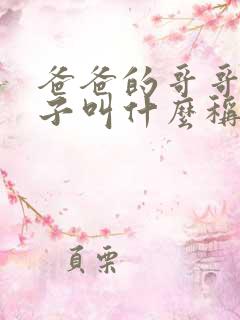 爸爸的哥哥
子叫什麼稱
頁栗